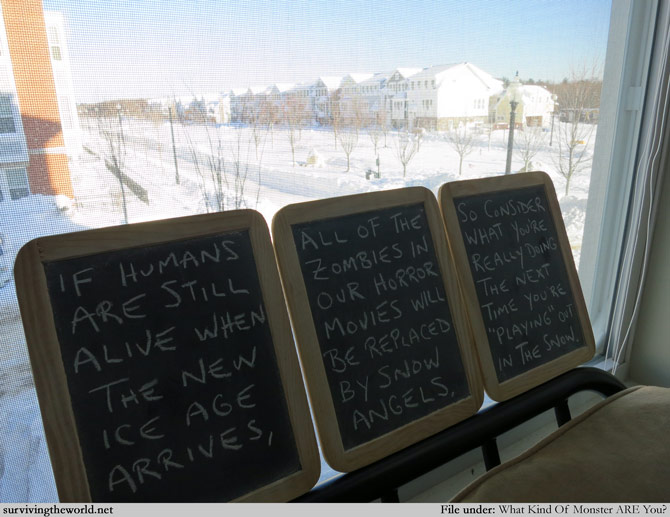 IF HUMANS
ARE STILL
ALIVE WHEN
THE NEW
ICE AGE
ARRIVES,
ALL OF THE
ZOMBIES IN
OUR HORROR
MOVIES WILL
BE REPLACED
BY SNOW
ANGELS,
SO CONSIDER
WHAT YOU'RE
REALLY DOING
THE NEXT
TIME YOU'RE
"PLAYING" OUT
IN THE SNOW.
survivingtheworld.net
File under: What Kind Of Monster ARE You?